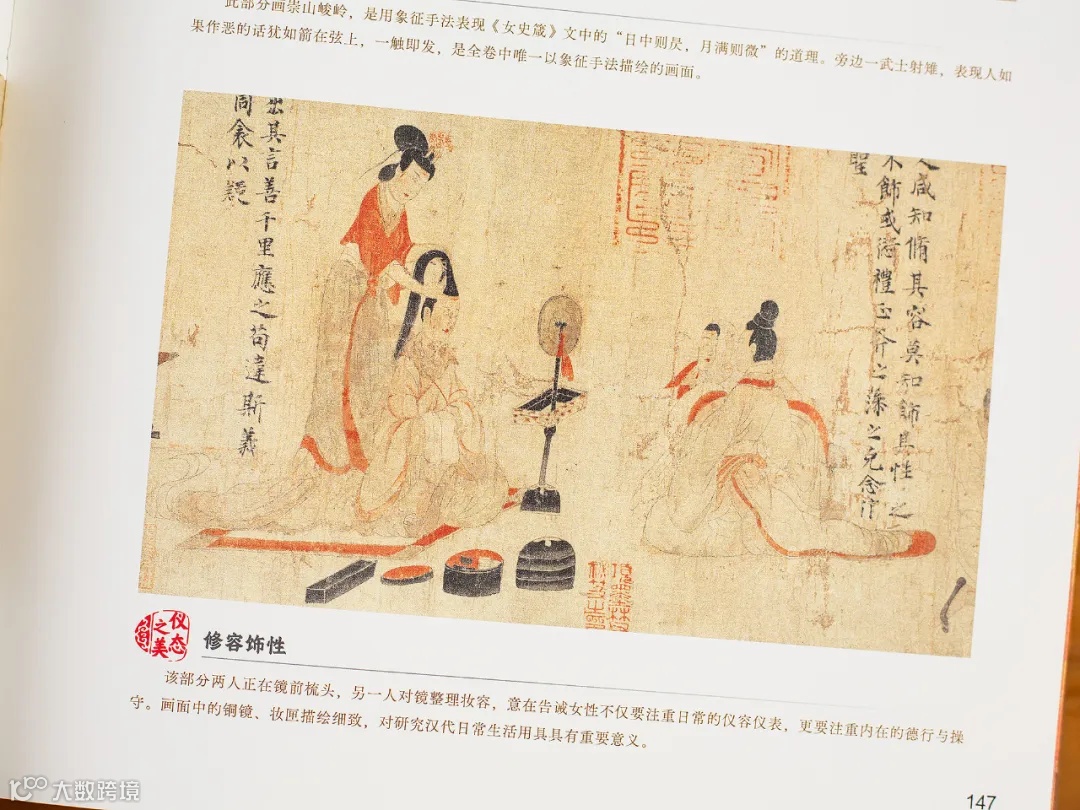 此部分画崇山峻岭，是用象征手法表现《女史箴》文中的“日中则昃，月满则微”的道理。旁边一武士射雉，表现人如
果作恶的话犹如箭在弦上，一触即发，是全卷中唯一以象征手法描绘的画面。
咸知脩其容莫知飾其性之
不飾或愆禮正斧之藻之克念作
聖
出其言善千里應之苟違斯義
同衾以疑
仪态之美
修容饰性
该部分两人正在镜前梳头，另一人对镜整理妆容，意在告诫女性不仅要注重日常的仪容仪表，更要注重内在的德行与操
守。画面中的铜镜、妆匣描绘细致，对研究汉代日常生活用具具有重要意义。
147
大数跨境